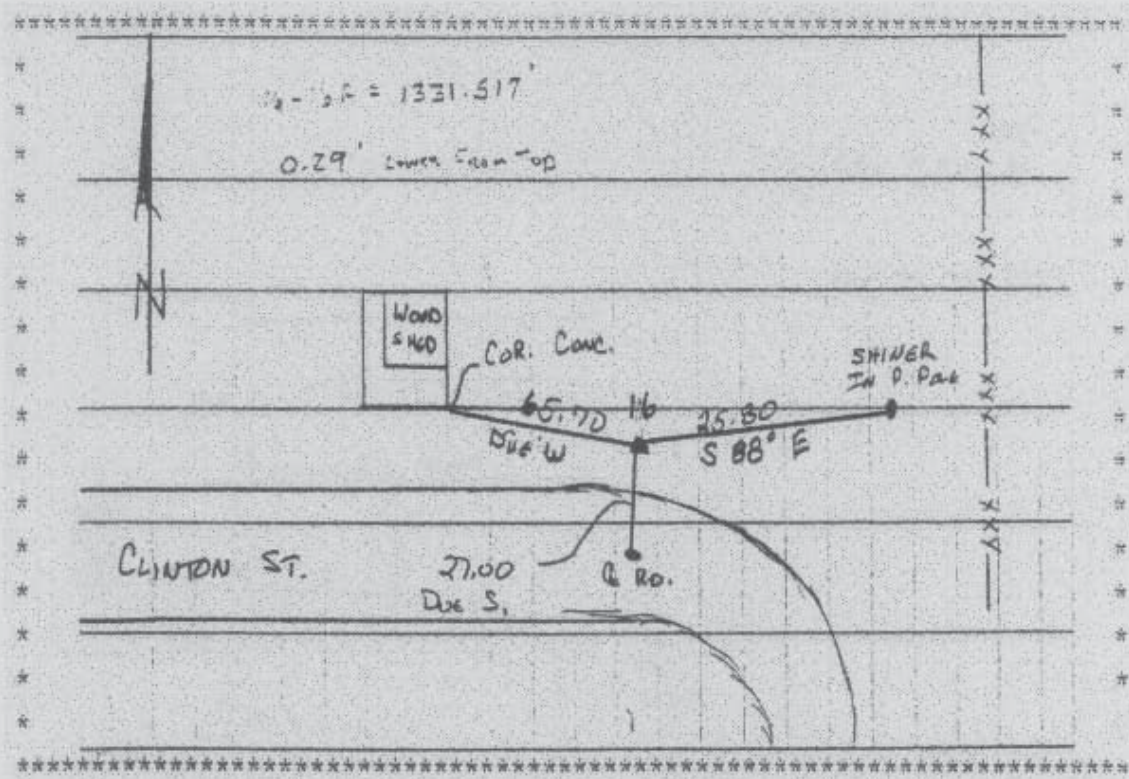 = 1331.517'
0.29' Lower From Top
N
WOOD
SHED
COR. CONC.
SHINER
IN P. Pole
65.70
16
25.80
DUE W
S 88° E
CLINTON ST.
27.00
DUE S.
℄ RD.
XXX
XXX
XXX
XXX